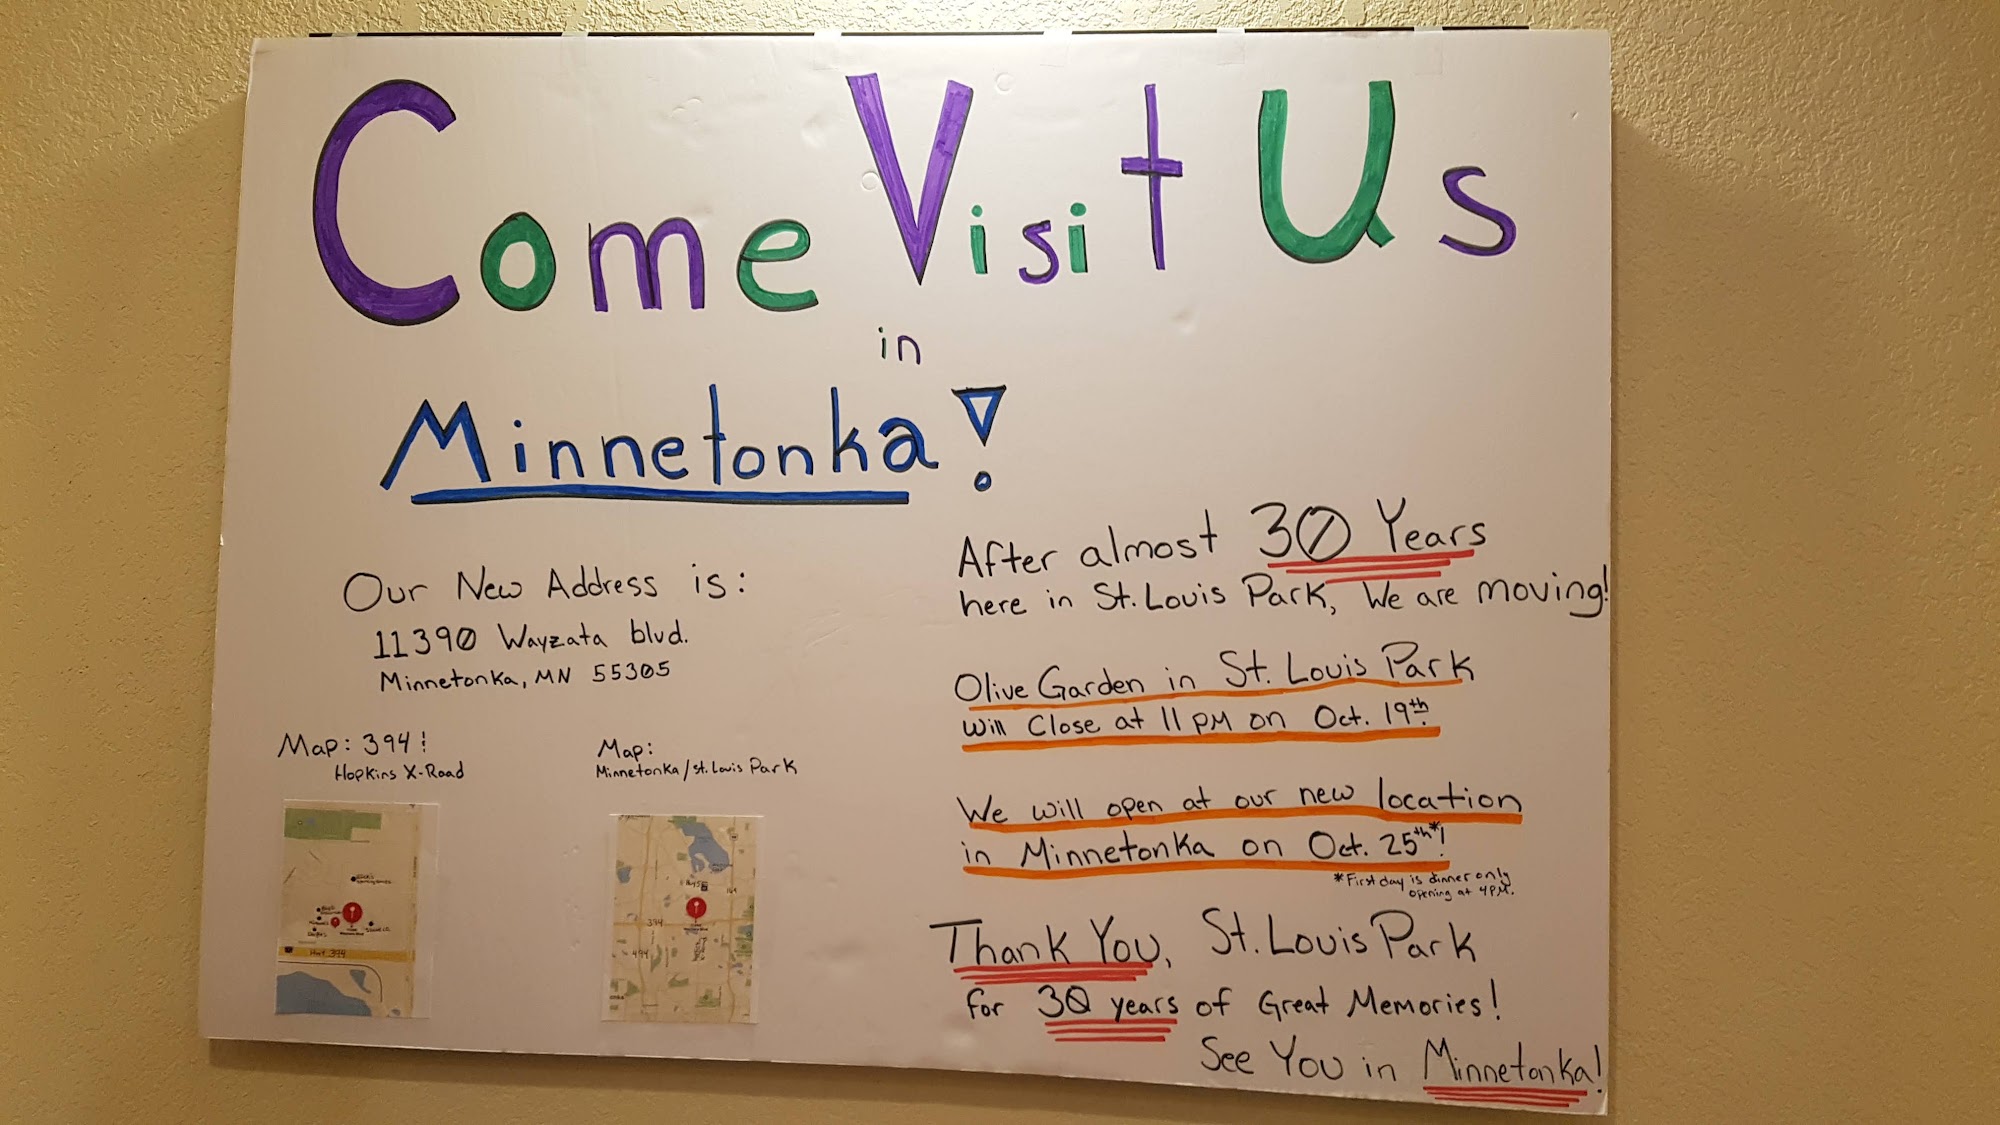 Come Visit Us
in
Minnetonka!
Our New Address is:
11390 Wayzata blvd.
Minnetonka, MN 55305
Map: 394!
Hopkins X-Road
Map:
Minnetonka/St. Louis Park
Hwt 394
394
494
169
After almost 30 Years
here in St. Louis Park, We are moving!
Olive Garden in St. Louis Park
Will Close at 11 PM on Oct. 19th.
We will open at our new location
in Minnetonka on Oct. 25th*!
*First day is dinner only
opening at 4PM.
Thank You, St. Louis Park
for 30 years of Great Memories!
See You in Minnetonka!